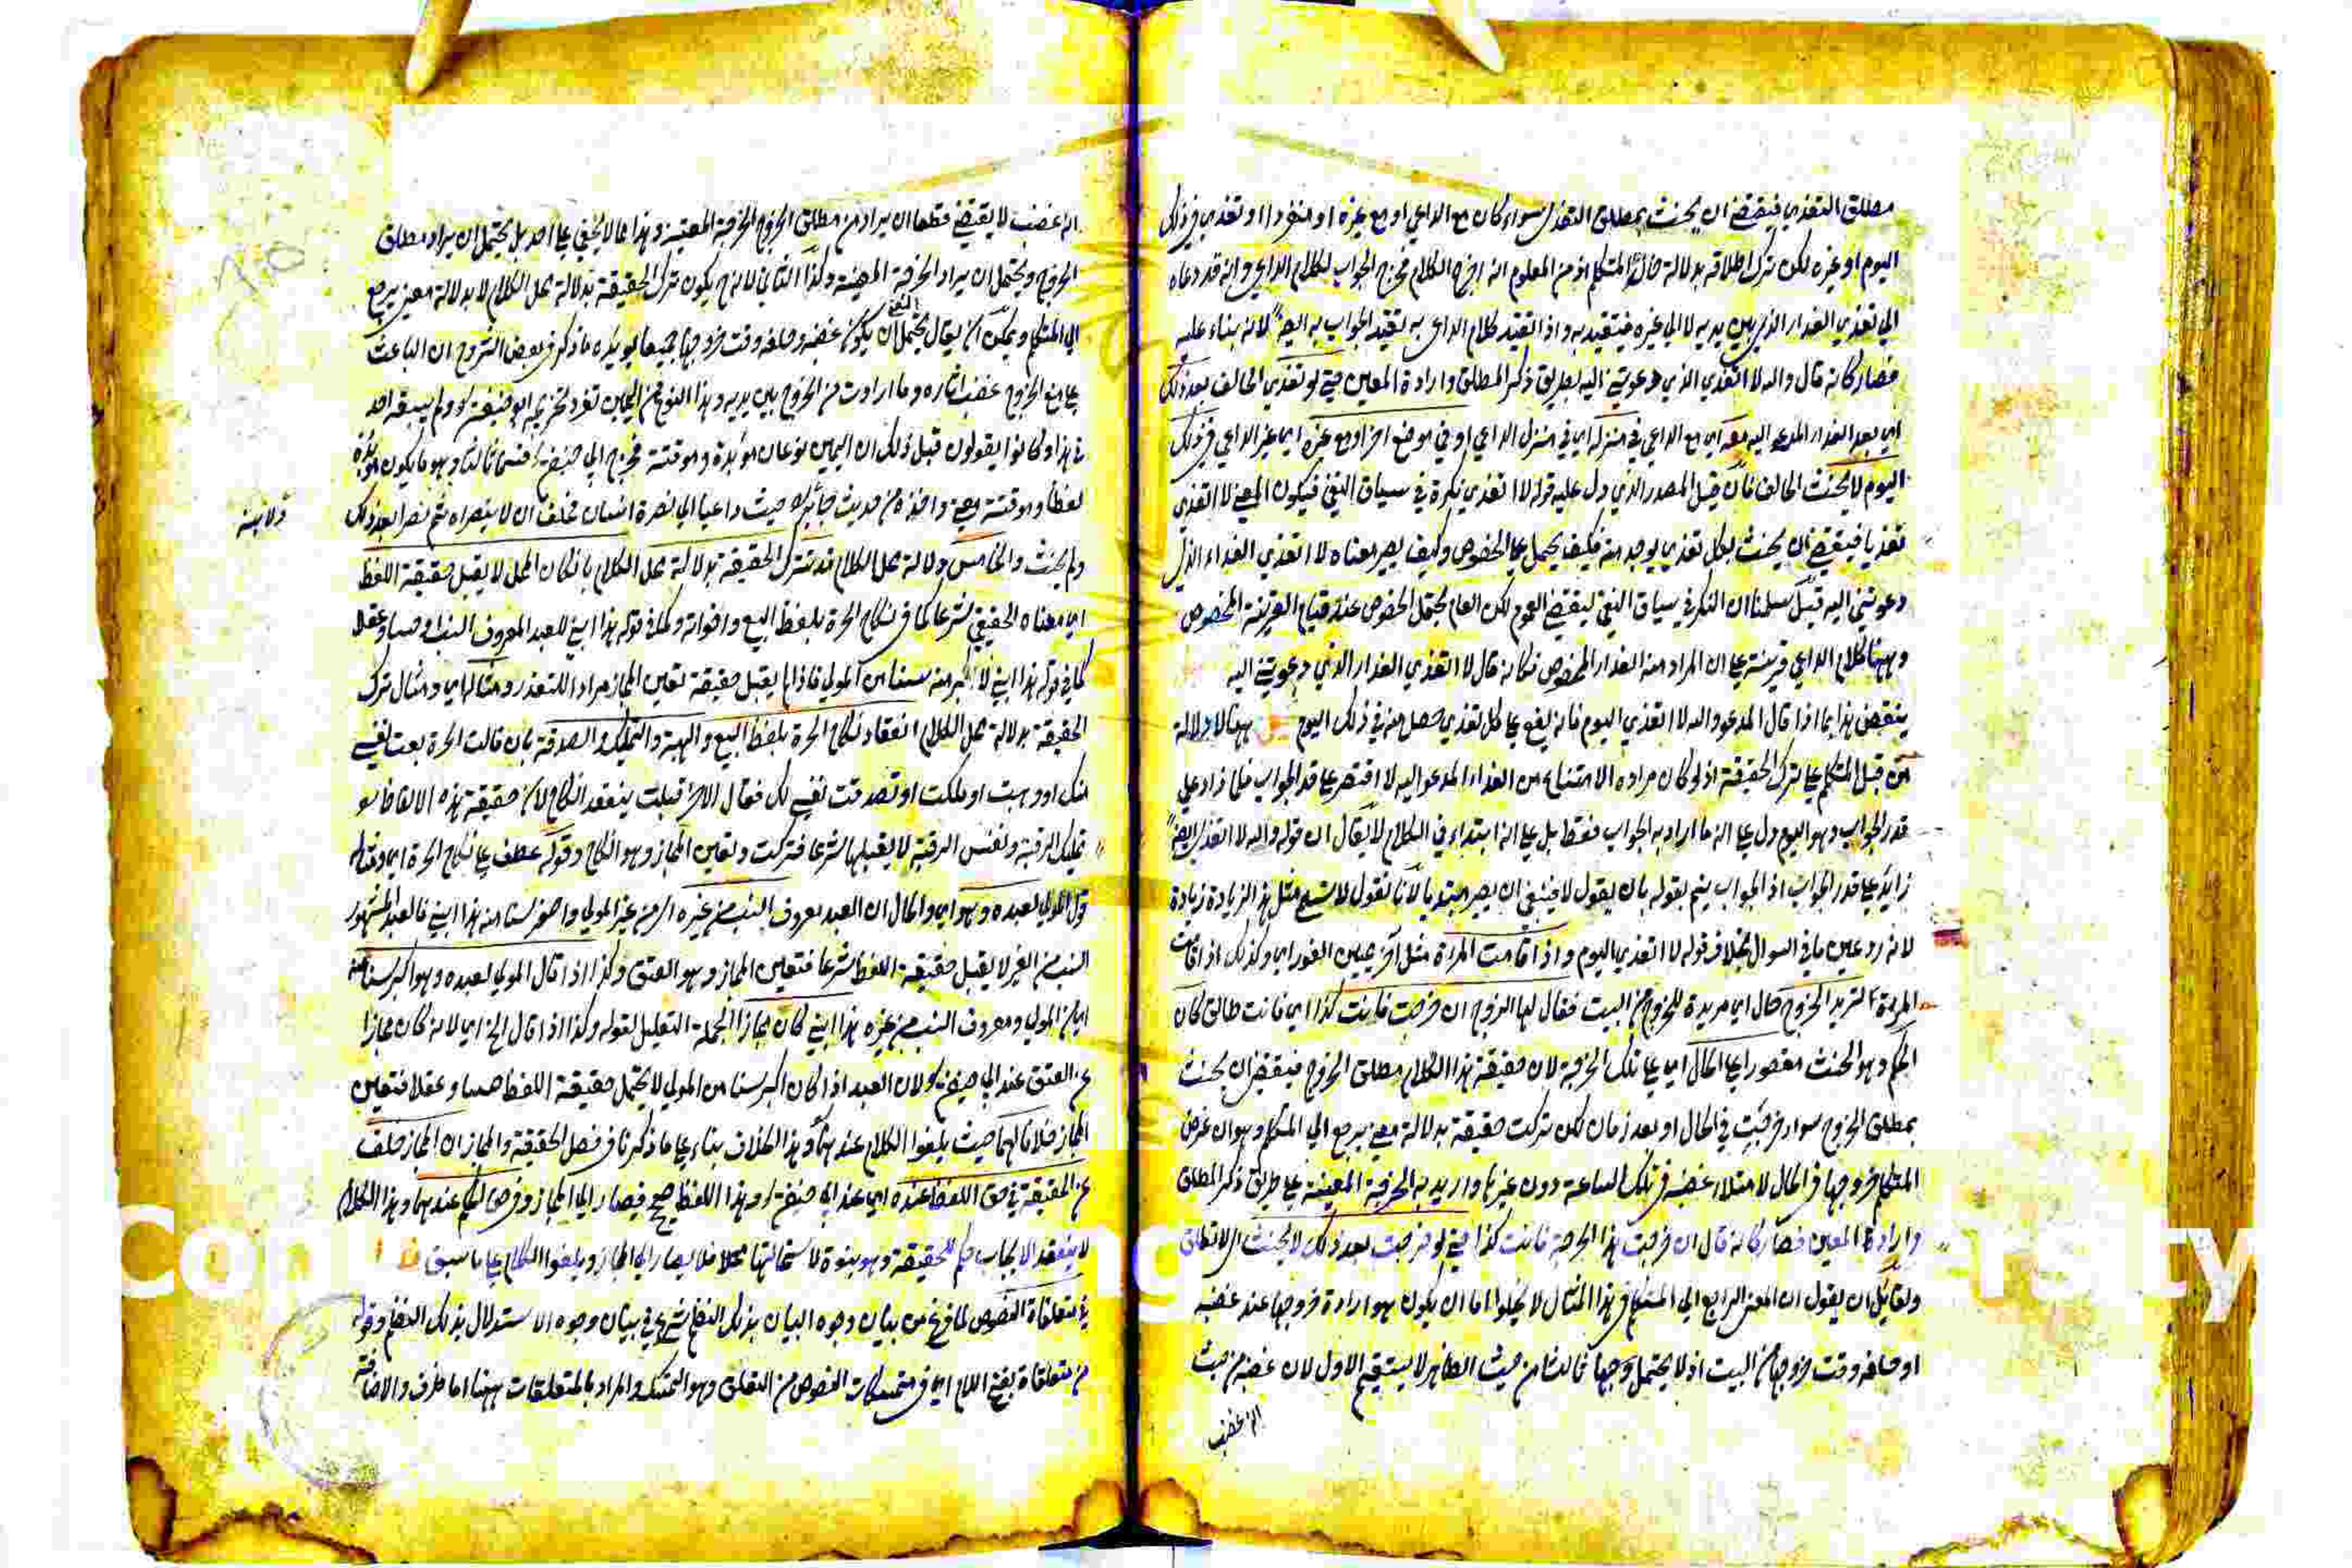 مطلق التغدي فيقتضي ان يحنث بمطلق التغدي سواء كان مع الداعي او مع غيره او منفردا او تغدي في ذلك
اليوم او غيره لكن ترك اطلاقه بدلالة حال المتكلم اذ من المعلوم انه اخرج الكلام مخرج الجواب لكلام الداعي وانه قد دعاه
الي تغدي الغداء الذي بين يديه لا الي غيره فيتقيد به واذا تقيد كلام الداعي به تقيد الجواب به ايضا لانه بناء عليه
فصار كانه قال والله لا اتغدي الذي دعوتني اليه بطريق ذكر المطلق وارادة المعين حتي لو تغدي الحالف بعد ذلك
اي بعد الغداء المدعو اليه معه اي مع الداعي في منزله اي في منزل الداعي او في موضع اخر او مع غيره اي غير الداعي في ذلك
اليوم لا يحنث الحالف فان قيل المصدر الذي دل عليه قوله لا اتغدي نكرة في سياق النفي فيكون المعني لا اتغدي
تغديا فيقتضي ان يحنث بكل تغدي يوجد منه فكيف يحمل علي الخصوص وكيف يصير معناه لا اتغدي الغداء الذي
دعوتني اليه قيل سلمنا ان النكرة في سياق النفي يقتضي العموم لكن العام يحتمل الخصوص عند قيام القرينة المخصوص
وههنا كلام الداعي قرينة علي ان المراد منه الغداء المخصوص فكانه قال لا اتغدي الغداء الذي دعوتني اليه
ينقض هذا بما اذا قال المدعو والله لا اتغدي اليوم فانه يقع علي كل تغدي حصل منه في ذلك اليوم ههنا لا دلالة
من قبل المتكلم علي ترك الحقيقة اذ لو كان مراده الامتناع من الغداء المدعو اليه لاقتصر علي قدر الجواب فلما زاد علي
قدر الجواب وهو اليوم دل علي انه ما اراد به الجواب فقط بل علي انه ابتداء في الكلام لا يقال ان قوله والله لا اتغدي ايضا
زايد علي قدر الجواب اذ الجواب يتم بقوله بان يقول لا فينبغي ان يصير مبتديا لانا نقول لا نسلم مثل هذا الزيادة زيادة
لانه رد عين ما في السوال بخلاف قوله لا اتغدي اليوم واذا قامت المراة مثل اخر يمين الفور اي وكذلك اذا قامت
المراة تريد الخروج حال اي مريدة للخروج من البيت فقال لها الزوج ان خرجت فانت كذا اي فانت طالق كان
الحكم وهو الحنث مقصورا علي الحال اي علي تلك الخرجة لان حقيقة هذا الكلام مطلق الخروج فيقتضي ان يحنث
بمطلق الخروج سواء خرجت في الحال او بعد زمان لكن تركت حقيقة بدلالة معني يرجع الي المتكلم وهو ان غرض
المتكلم خروجها في الحال لامتلاء غضبه في تلك الساعة دون غيرها واريد به الخرجة المعينة علي طريق ذكر المطلق
وارادة المعين فصار كانه قال ان خرجت هذا الخرجة فانت كذا حتي لو خرجت بعد ذلك لا يحنث
ولقائل ان يقول ان المعني الراجع الي المتكلم في هذا المثال لا يخلوا اما ان يكون هو ارادة خروجها عند غضبه
او حلفه وقت خروجها من البيت اذ لا يحتمل وجها ثالثا من حيث الظاهر لا يستقيم الاول لان غضبه من حيث
انه غضب
انه غضب لا يقتضي قطعا ان يراد من مطلق الخروج الخرجة المعينة وهذا مما لا يخفي علي احد بل يحتمل ان يراد مطلق
الخروج ويحتمل ان يراد الخرجة المعينة وكذا الثاني لانه يكون ترك الحقيقة بدلالة محل الكلام لا بدلالة معني يرجع
الي المتكلم ويمكن ان يقال يحتمل ان يكون غضبه وحلفه وقت خروجها جميعا يويده ما ذكر في بعض الشروح ان الباعث
علي منع الخروج غضب اثاره وما ارادت من الخروج بين يديه وهذا النوع من اليمين تفرد تخريجه ابو حنيفة ولم يسبقه احد
في هذا وكانوا يقولون قبل ذلك ان اليمين نوعان موبدة وموقتة فخرج ابي حنيفة قسما ثالثا وهو ما يكون موبدة
لفظا وموقتة معني واخذه من حديث جابر حيث دعيا الي نصرة انسان فحلف ان لا ينصراه ثم نصراه بعد ذلك
ولم يحنث والخامس دلالة محل الكلام قد تترك الحقيقة بدلالة محل الكلام بان كان المحل لا يقبل حقيقة اللفظ
اي معناه الحقيقي شرعا كما في نكاح الحرة بلفظ البيع واخواته وكذا قوله هذا ابني للعبد المعروف النسب او حسا وعقلا
كما في قوله هذا ابني لاكبر منه سنا من المولي فاذا لم يقبل حقيقة تعين المجاز مرادا للتعذر ومثاله اي ومثال ترك
الحقيقة بدلالة محل الكلام انعقاد نكاح الحرة بلفظ البيع والهبة والتمليك والصدقة بان قالت الحرة بعت نفسي
منك او وهبت او ملكت او تصدقت نفسي لك فقال الاخر قبلت ينعقد النكاح لان حقيقة هذه الالفاظ هو
تمليك الرقبة ونفس الرقبة لا يقبلها شرعا فتركت وتعين المجاز وهو النكاح وقوله عطف علي نكاح الحرة اي ومثله
قول المولي لعبده وهو اي والحال ان العبد معروف النسب من غيره اي من غير المولي واصغر سنا منه هذا ابني فالعبد المشهور
النسب من الغير لا يقبل حقيقة اللفظ شرعا فتعين المجاز وهو العتق وكذا اذا قال المولي لعبده وهو اكبر سنا منه
اي من المولي ومعروف النسب من غيره هذا ابني كان مجازا الجملة التعليل لقوله وكذا اذا قال الخ اي لانه كان مجازا
عن العتق عند ابي حنيفة لان العبد اذا كان اكبر سنا من المولي لا يحتمل حقيقة اللفظ حسا وعقلا فتعين
المجاز خلافا لهما حيث يلغوا الكلام عندهما وهذا الخلاف بناء علي ما ذكرنا في فصل الحقيقة والمجاز ان المجاز خلف
عن الحقيقة في حق اللفظ عنده اي عند ابي حنيفة وهذا اللفظ صحيح فيصار الي المجاز وفي حق الحكم عندهما وهذا الكلام
لا ينعقد لايجاب حكم الحقيقة وهو بنوة لاستحالتها محلا فلا يصار الي المجاز ويلغوا الكلام علي ما سبق
في متعلقات النصوص لما فرغ من بيان وجوه البيان بذلك النظم شرع في بيان وجوه الاستدلال بذلك النظم وقوله
من متعلقاة بفتح اللام اي في متمسكات النصوص من التعلق وهو التمسك والمراد بالمتعلقات ههنا اما ظرف والاضافة